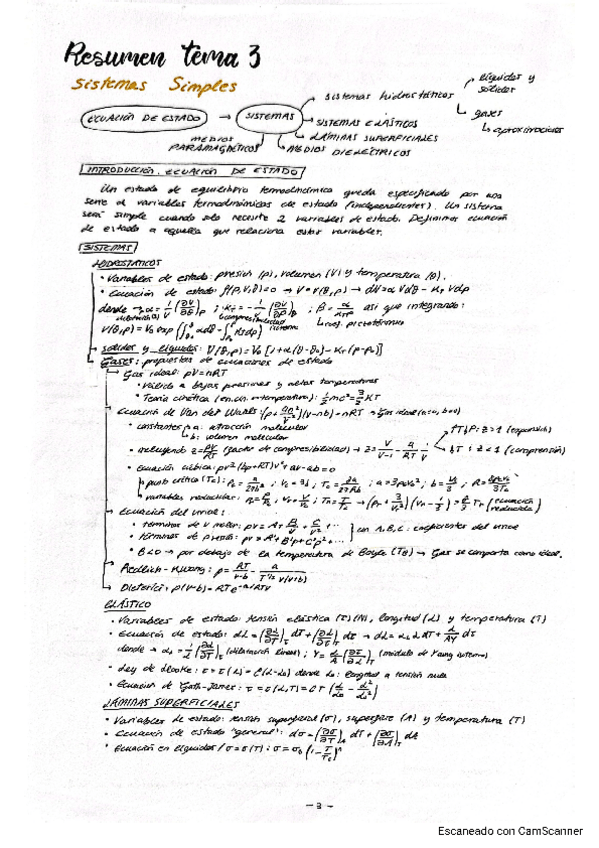 Resumen tema 3
Sistemas Simples
ECUACIÓN DE ESTADO → SISTEMAS
sistemas hidrostáticos
líquidos y sólidos
gases
aproximaciones
SISTEMAS ELÁSTICOS
LÁMINAS SUPERFICIALES
MEDIOS DIELÉCTRICOS
MEDIOS PARAMAGNÉTICOS
INTRODUCCIÓN. ECUACIÓN DE ESTADO
Un estado de equilibrio termodinámico queda especificado por una
serie de variables termodinámicas de estado (independientes). Un sistema
será simple cuando solo necesite 2 variables de estado. Definimos ecuación
de estado a aquella que relaciona estas variables.
SISTEMAS
HIDROSTÁTICOS
• Variables de estado: presión (p), volumen (V) y temperatura (θ).
• Ecuación de estado: f(P,V,θ)=0 → V=V(θ,p) → dV=αVdθ - K_T Vdp
donde → α = 1/V (∂V/∂θ)_P ; K_T = -1/V (∂V/∂p)_θ ; β = α/K_T así que integrando:
V(θ,p) = V₀ exp
→ sólidos y líquidos: V(θ,p) = V₀ [1+α(θ-θ₀) - K_T(p-p₀)]
Gases: propuestas de ecuaciones de estado
→ Gas ideal: pV=nRT
• Válido a bajas presiones y altas temperaturas
• Teoría cinética (en.cin. ↔ temperatura): 1/2 mc² = 3/2 KT
→ Ecuación de Van der Waals: (p + an²/V²)(V-nb) = nRT → Gas ideal (a=0, b=0)
• constantes → a: atracción molecular
b: volumen molecular
• incluyendo z = pV/RT (factor de compresibilidad) → z =
↑T ↓P: z>1 (expansión)
↓T: z<1 (compresión)
• Ecuación cúbica: pv³ - (bp+RT)v² + av - ab = 0
punto crítico (Tc): Pc = a/27b² ; Vc = 3b ; Tc = 8a/27Rb ; a = 3pcVc² ; b = Vc/3 ; R = 8pcVc/3Tc
variables reducidas: → (Pr + 3/Vr²)(Vr - 1/3) = 8/3 Tr (ecuación reducida)
→ Ecuación del virial:
• términos de v molar: pv = A + B/v + C/v² + ...
• términos de presión: pv = A' + B'p + C'p² + ...
con A,B,C: coeficientes del virial
• B<0 → por debajo de la temperatura de Boyle (T_B) → Gas se comporta como ideal.
→ Redlich-Kwong: p = RT/v-b - a/T^1/2 v(v+b)
→ Dieterici: p(v-b) = RTe^-a/RTv
ELÁSTICO
• Variables de estado: tensión elástica (τ) (N), longitud (L) y temperatura (T)
• Ecuación de estado: dL = (∂L/∂T)_τ dT + (∂L/∂τ)_T dτ → dL = α_L L dT + L/AY dτ
donde → α_L = 1/L (∂L/∂T)_τ (dilatación lineal) ; Y = L/A (∂τ/∂L)_T (módulo de Young isotermo)
• Ley de Hooke: τ = τ(L) = C(L-L₀) donde L₀: longitud a tensión nula
• Ecuación de : τ = τ(L,T) = CT (L/L₀ - L₀²/L²)
LÁMINAS SUPERFICIALES
• Variables de estado: tensión superficial (σ), superficie (A) y temperatura (T)
• Ecuación de estado "general": dσ = (∂σ/∂T)_A dT + (∂σ/∂A)_T dA
• Ecuación en líquidos / σ = σ(T): σ = σ₀ (1 - T/Tc)ⁿ
-3-
Escaneado con CamScanner